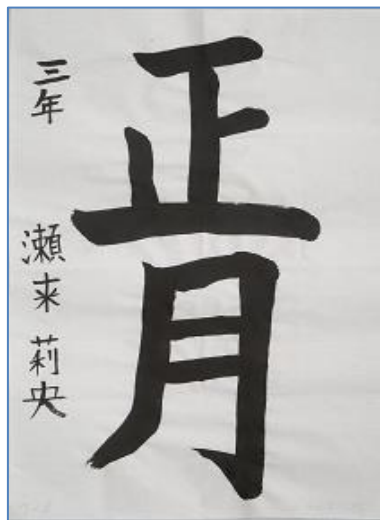 正月
三年 瀬来 莉央